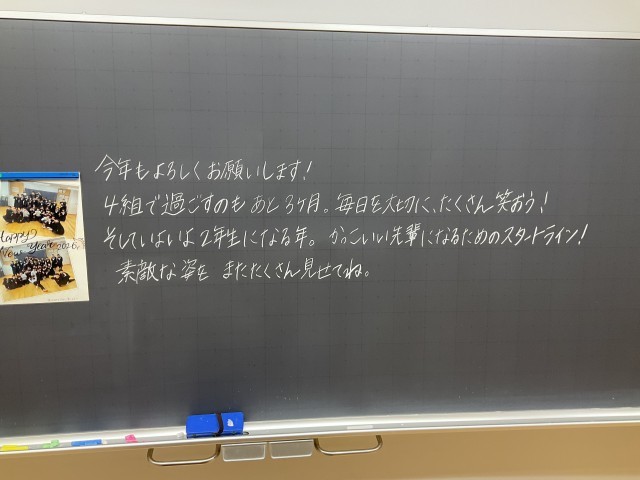 今年もよろしくお願いします!
4組で過ごすのもあと3ヶ月。毎日を大切に、たくさん笑おう!
そしていよいよ2年生になる年。かっこいい先輩になるためのスタートライン!
素敵な姿を またたくさん見せてね。
Happy
New Year 2026